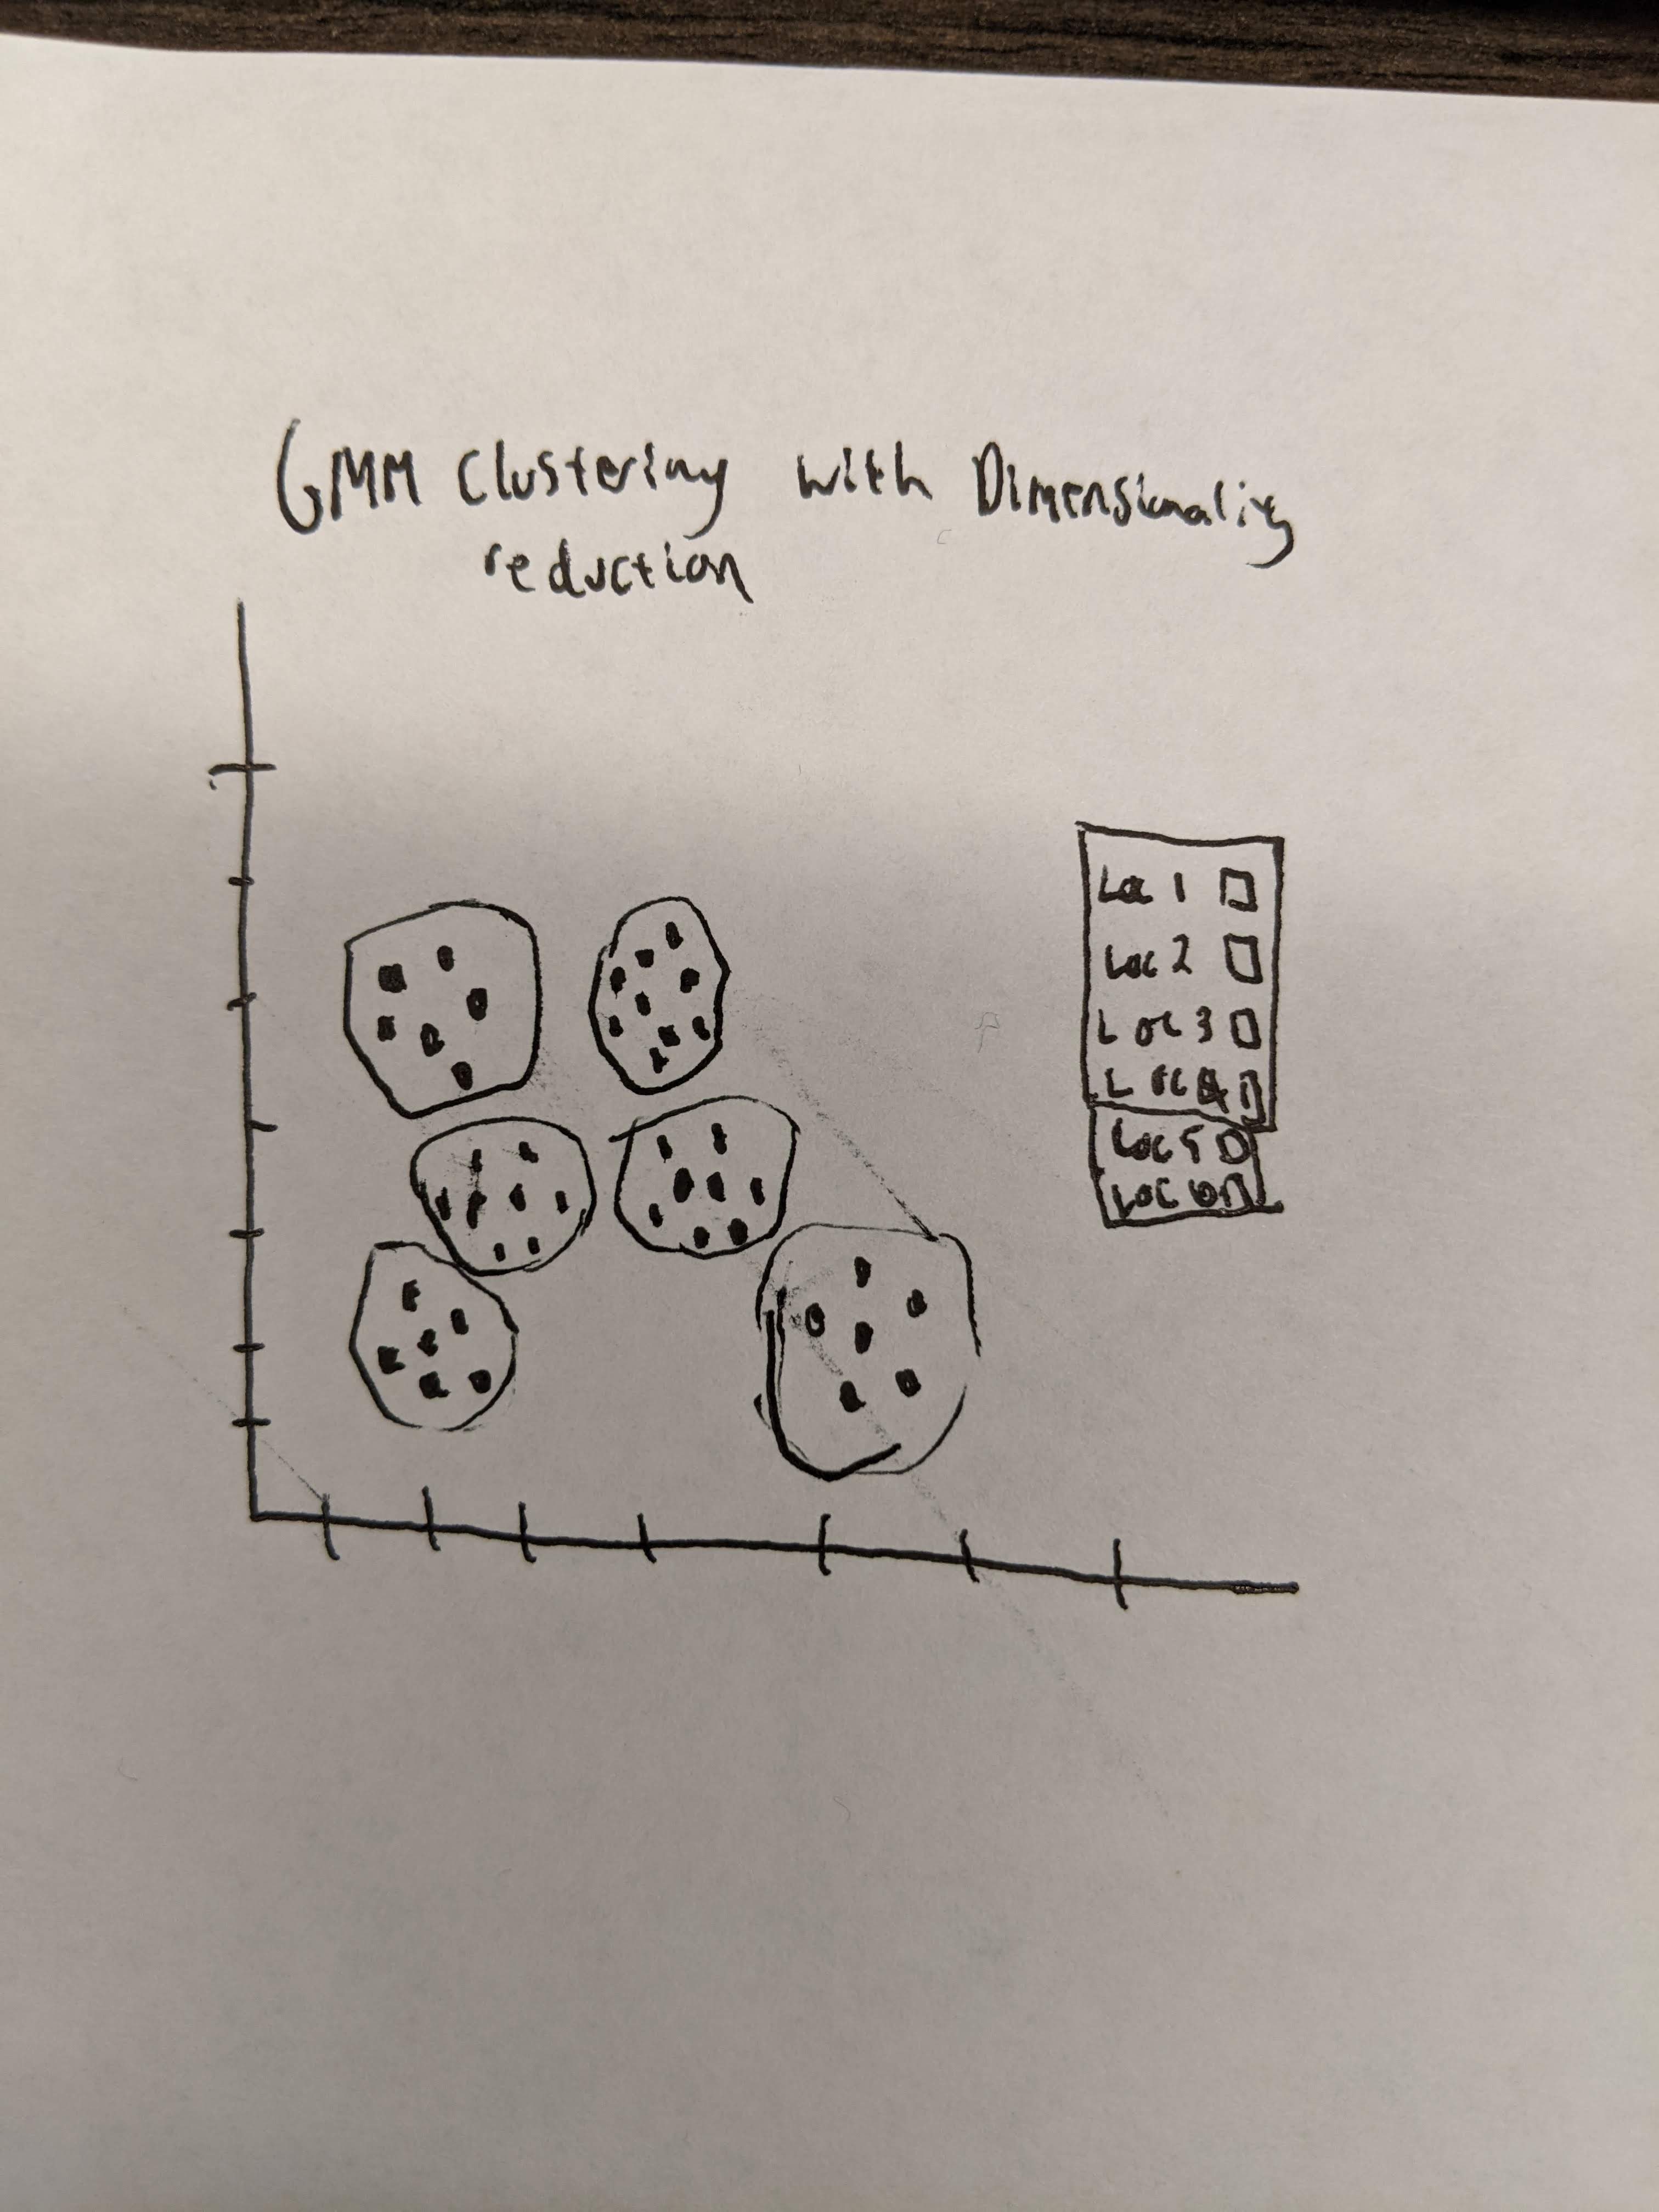 GMM Clustering with Dimensionality
reduction
Loc 1
Loc 2
Loc 3
Loc 4
Loc 5
Loc 6